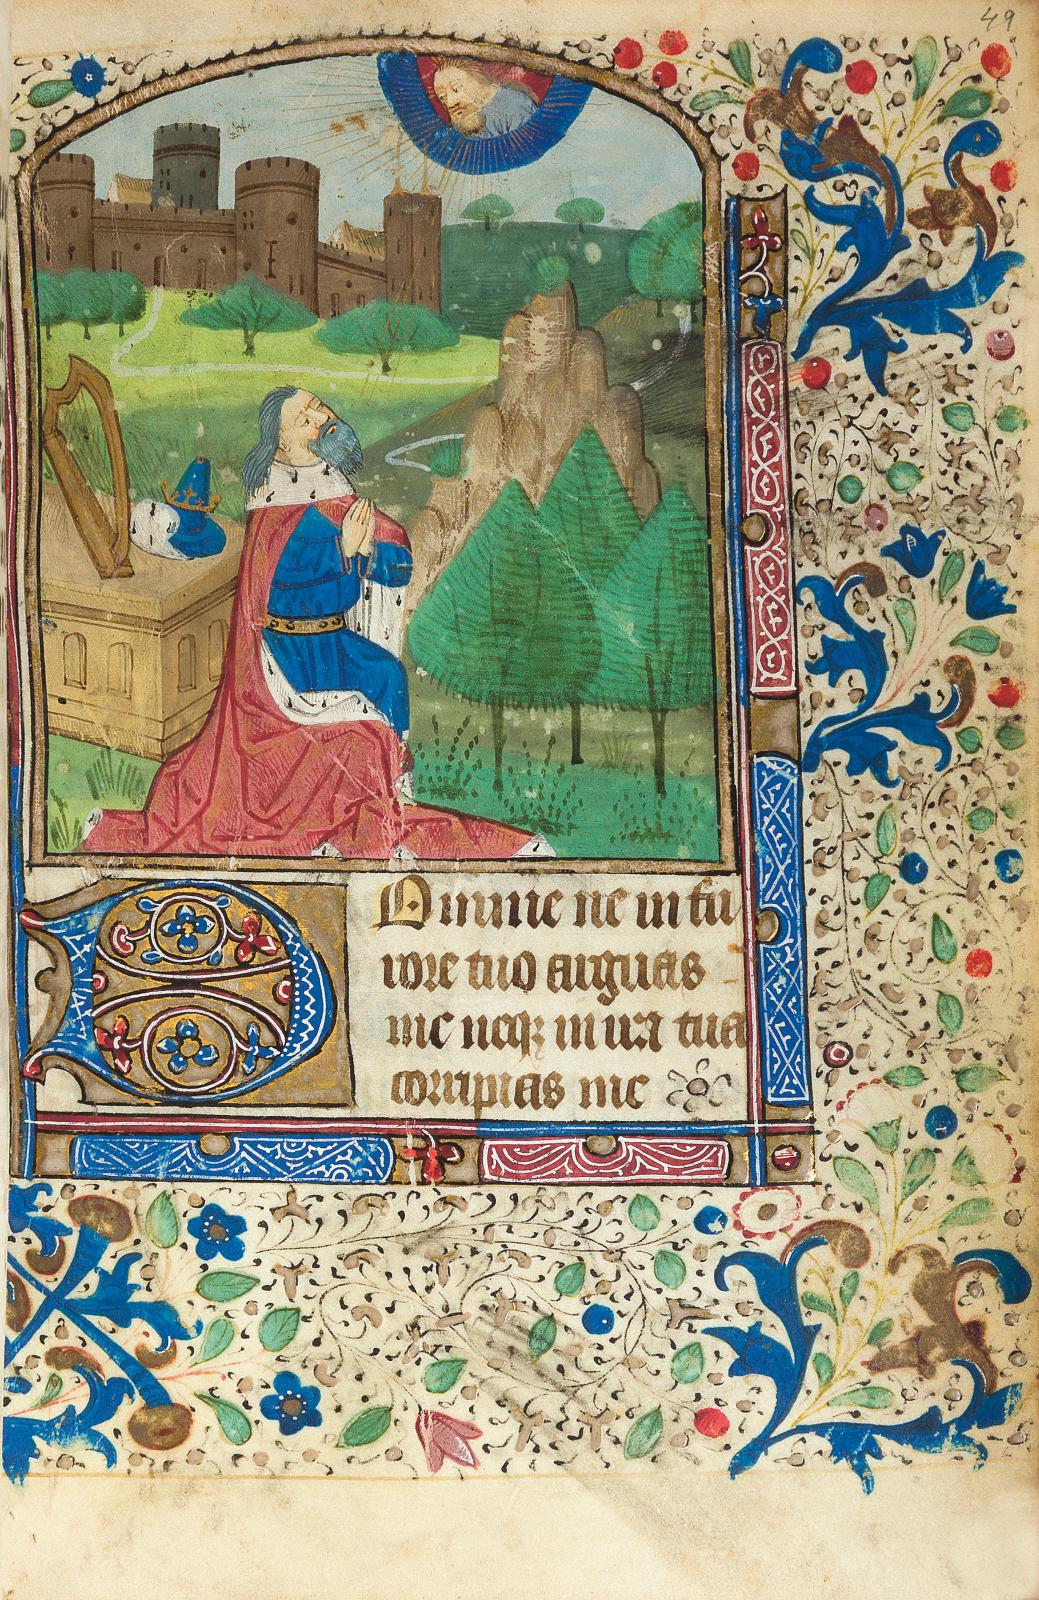 49
Domine ne in fu
rore tuo arguas
me neqꝫ in ira tua
corripias me